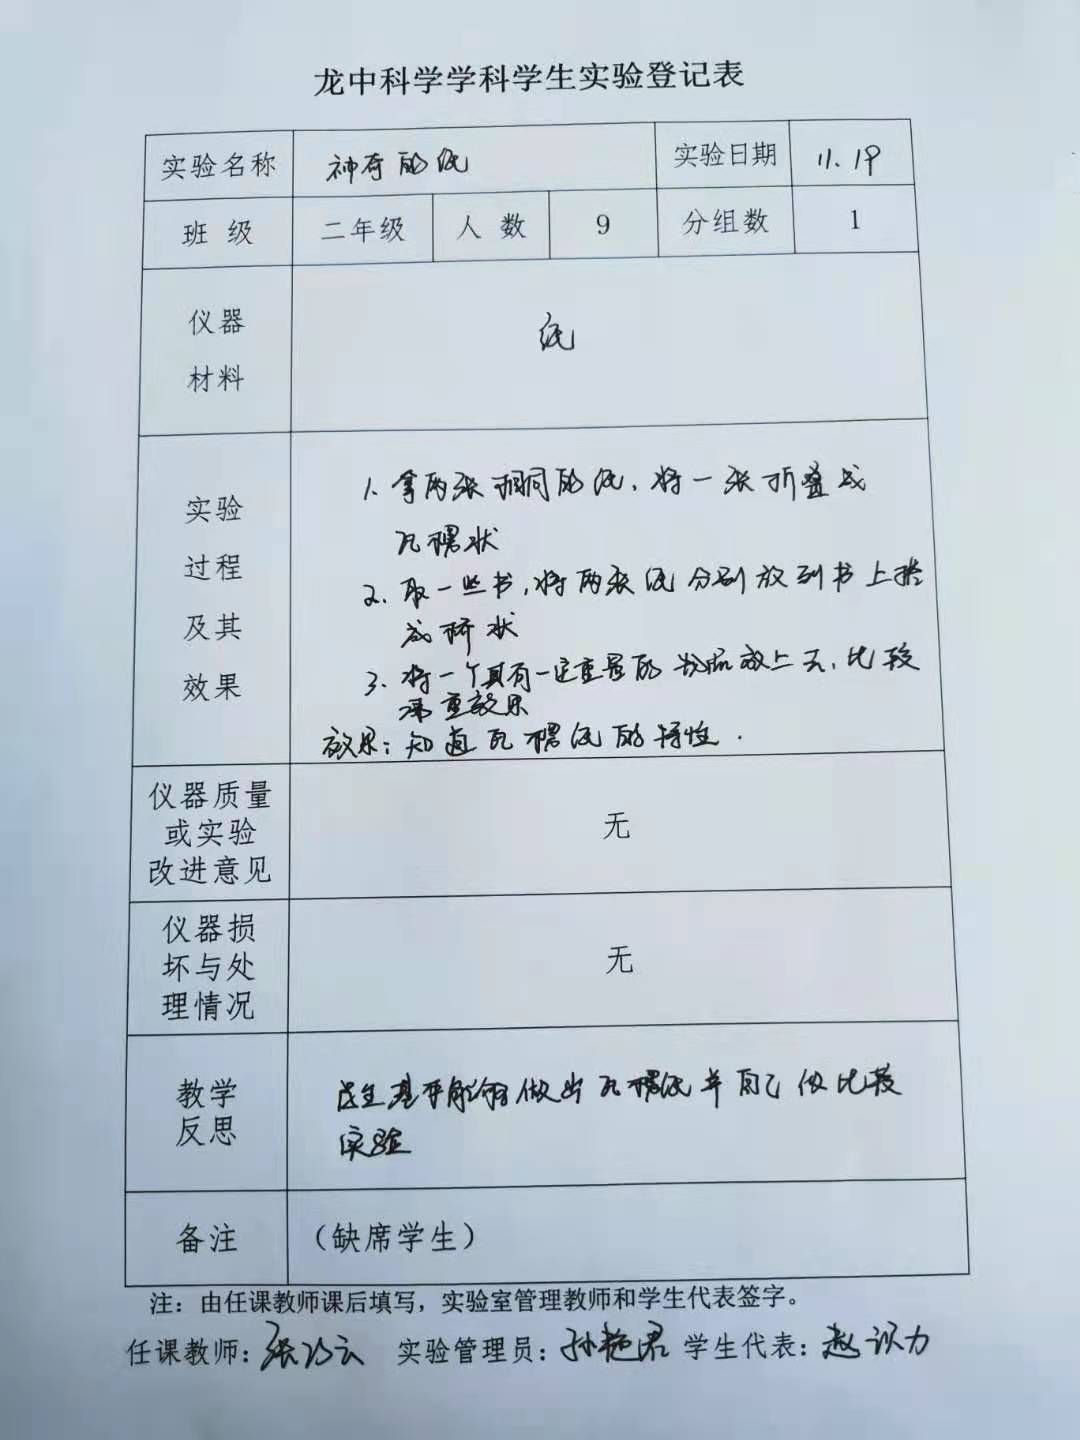 龙中科学学科学生实验登记表
实验名称 神奇的纸 实验日期 11.19
班 级 二年级 人 数 9 分组数 1
仪器
材料
纸
实验
过程
及其
效果
1. 拿两张相同的纸,将一张折叠成
瓦楞状
2. 取一些书,将两张纸分别放到书上搭
成桥状
3. 将一个具有一定重量的物品放上去,比较
承重效果
效果:知道瓦楞纸的特性.
仪器质量
或实验
改进意见
无
仪器损
坏与处
理情况
无
教学
反思
学生基本能够做出瓦楞纸并自己做比较
实验
备注 (缺席学生)
注:由任课教师课后填写,实验室管理教师和学生代表签字。
任课教师:张 云 实验管理员:孙艳君 学生代表:赵 力